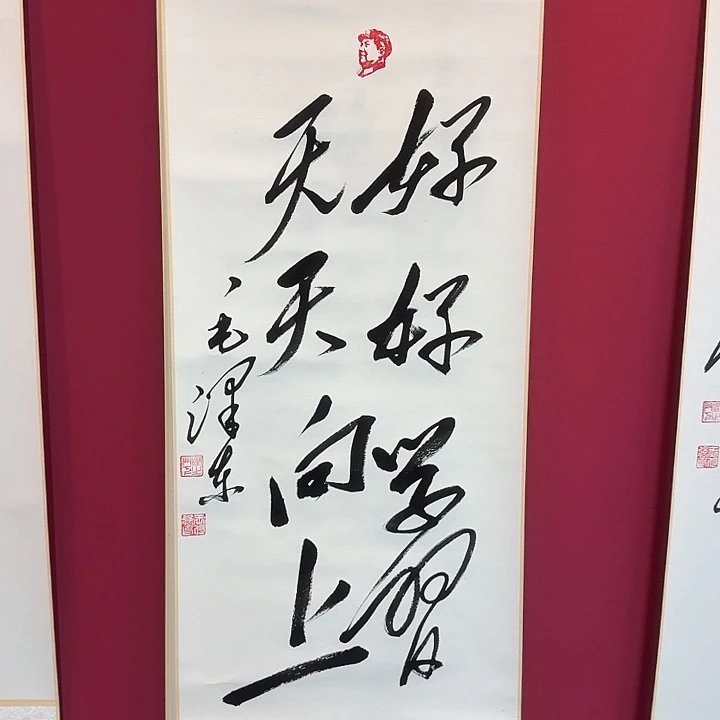 好好学習
天天向上
毛泽东